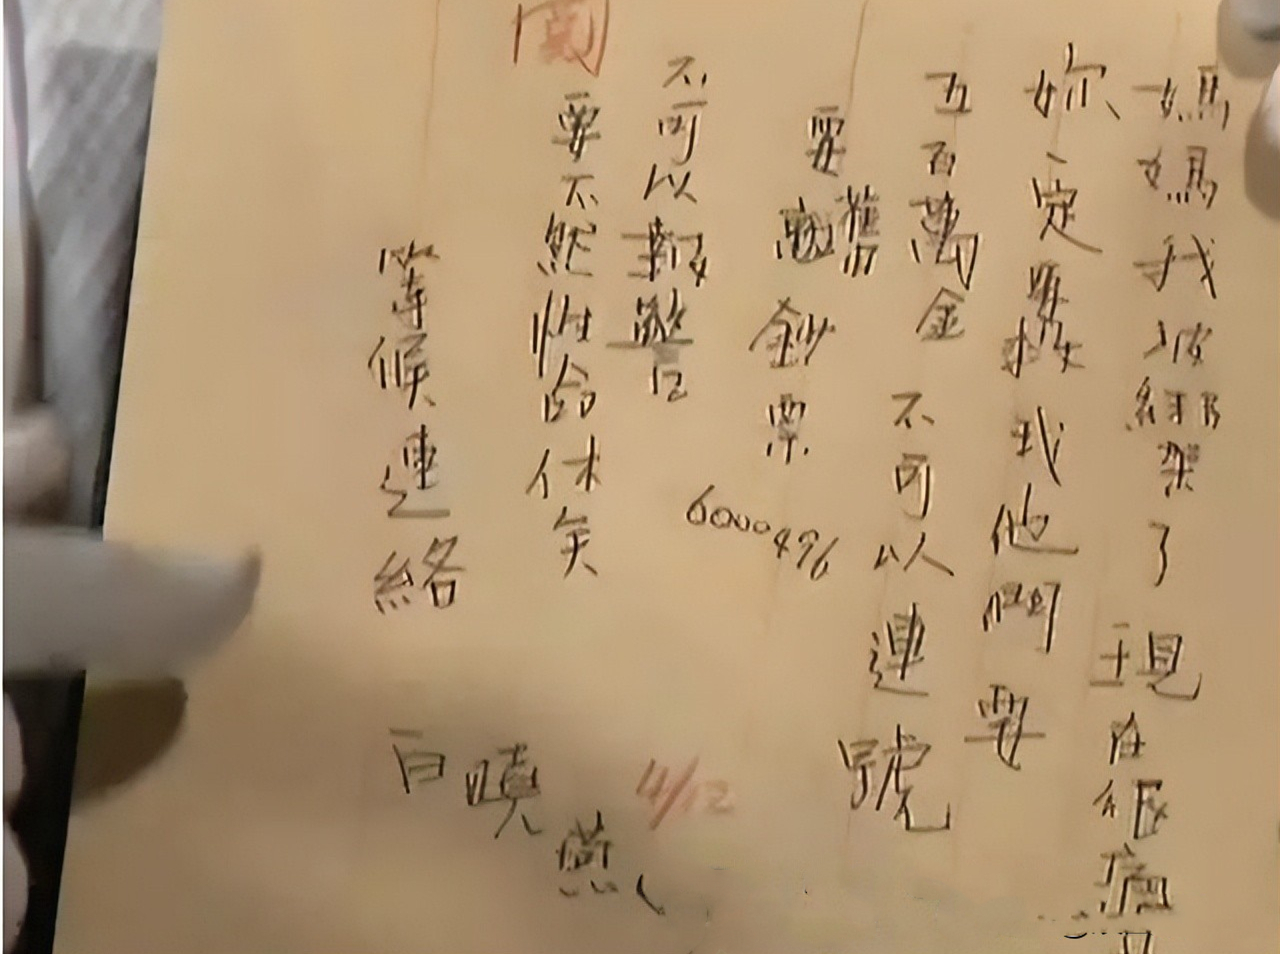 媽媽我被綁架了現在很痛
妳一定要救我他們要
五百萬金不可以連號
要舊鈔票
6000496
不可以報警
要不然性命休矣
等候連絡
白曉燕
4/12